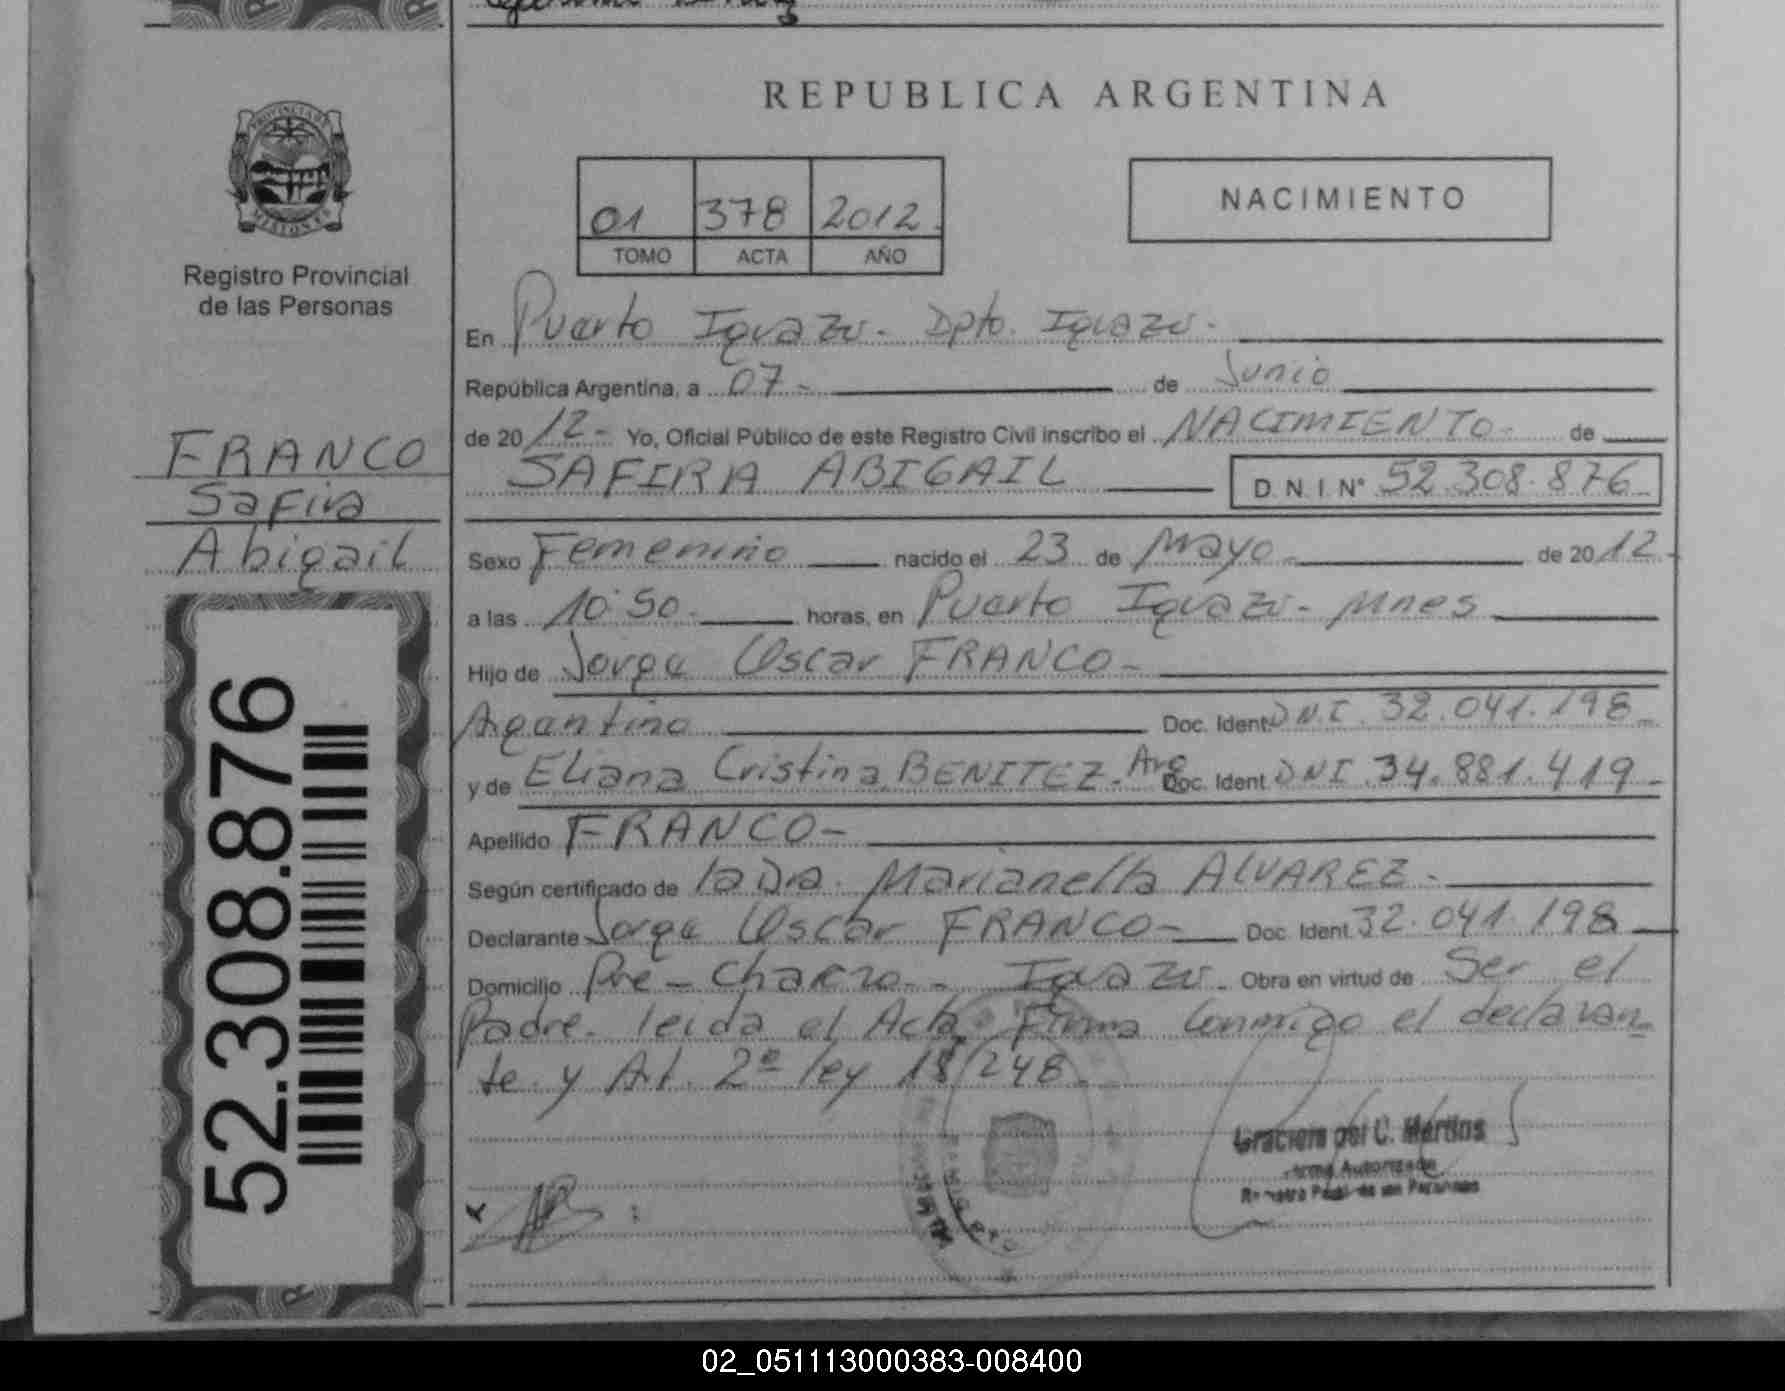 REPUBLICA ARGENTINA
PROVINCIA DE
MISIONES
Registro Provincial
de las Personas
01 378 2012.
TOMO ACTA AÑO
NACIMIENTO
En Puerto Iguazu. Dpto. Iguazu.
República Argentina, a 07- de Junio
de 2012- Yo, Oficial Público de este Registro Civil inscribo el NACIMIENTO- de
SAFIRA ABIGAIL D.N.I.N° 52.308.876
FRANCO
Safira
Abigail
Sexo Femenino nacido el 23 de Mayo- de 2012-
a las 10:50- horas, en Puerto Iguazu- Mnes
Hijo de Jorge Oscar FRANCO-
Argentino Doc. Ident. DNI. 32.041.198-
y de Eliana Cristina BENITEZ- Arg Doc. Ident. DNI 34.881.419-
Apellido FRANCO-
Según certificado de la Dra. Marianella ALVAREZ-
Declarante Jorge Oscar FRANCO- Doc. Ident. 32.041.198
Domicilio Pre-Chacra- Iguazu- Obra en virtud de Ser el
Padre- leida el Acta, Firma Conmigo el declaran-
te y Art. 2º ley 18/248-
Graciela del C. Martins
Firma Autorizada
52.308.876
02_051113000383-008400